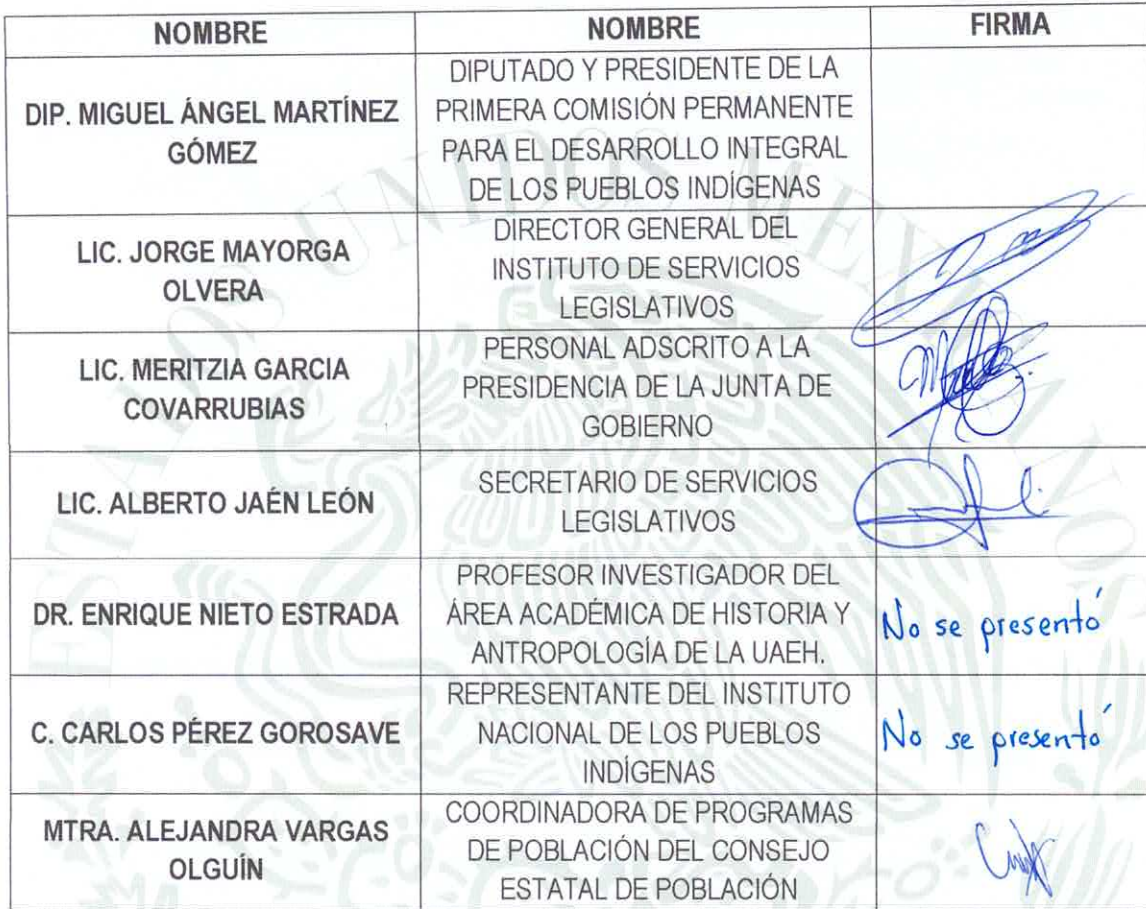 NOMBRE NOMBRE FIRMA
DIP. MIGUEL ÁNGEL MARTÍNEZ
GÓMEZ
DIPUTADO Y PRESIDENTE DE LA
PRIMERA COMISIÓN PERMANENTE
PARA EL DESARROLLO INTEGRAL
DE LOS PUEBLOS INDÍGENAS
LIC. JORGE MAYORGA
OLVERA
DIRECTOR GENERAL DEL
INSTITUTO DE SERVICIOS
LEGISLATIVOS
LIC. MERITZIA GARCIA
COVARRUBIAS
PERSONAL ADSCRITO A LA
PRESIDENCIA DE LA JUNTA DE
GOBIERNO
LIC. ALBERTO JAÉN LEÓN
SECRETARIO DE SERVICIOS
LEGISLATIVOS
DR. ENRIQUE NIETO ESTRADA
PROFESOR INVESTIGADOR DEL
ÁREA ACADÉMICA DE HISTORIA Y
ANTROPOLOGÍA DE LA UAEH.
No se presentó
C. CARLOS PÉREZ GOROSAVE
REPRESENTANTE DEL INSTITUTO
NACIONAL DE LOS PUEBLOS
INDÍGENAS
No se presentó
MTRA. ALEJANDRA VARGAS
OLGUÍN
COORDINADORA DE PROGRAMAS
DE POBLACIÓN DEL CONSEJO
ESTATAL DE POBLACIÓN
ESTADOS UNIDOS MEXICANOS